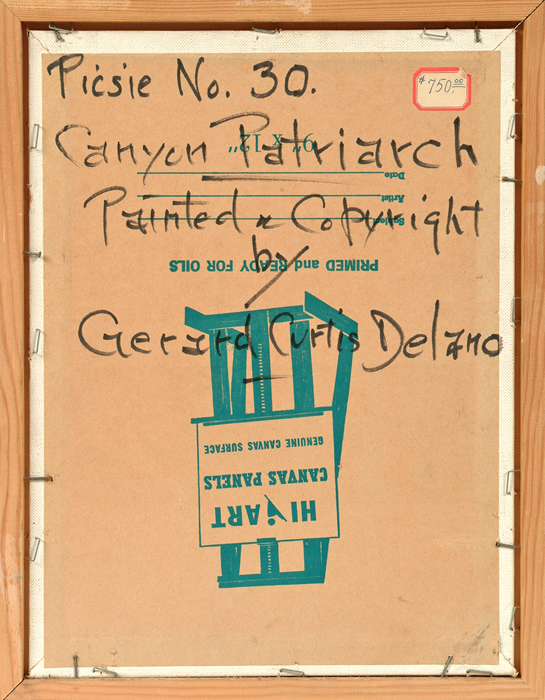 Picsie No. 30.
$750.00
Canyon Patriarch
9" x 12"
Date
Painted & Copyright
Artist
Subject
by
PRIMED and READY FOR OILS
Gerard Curtis Delano
GENUINE CANVAS SURFACE
CANVAS PANELS
HI ART